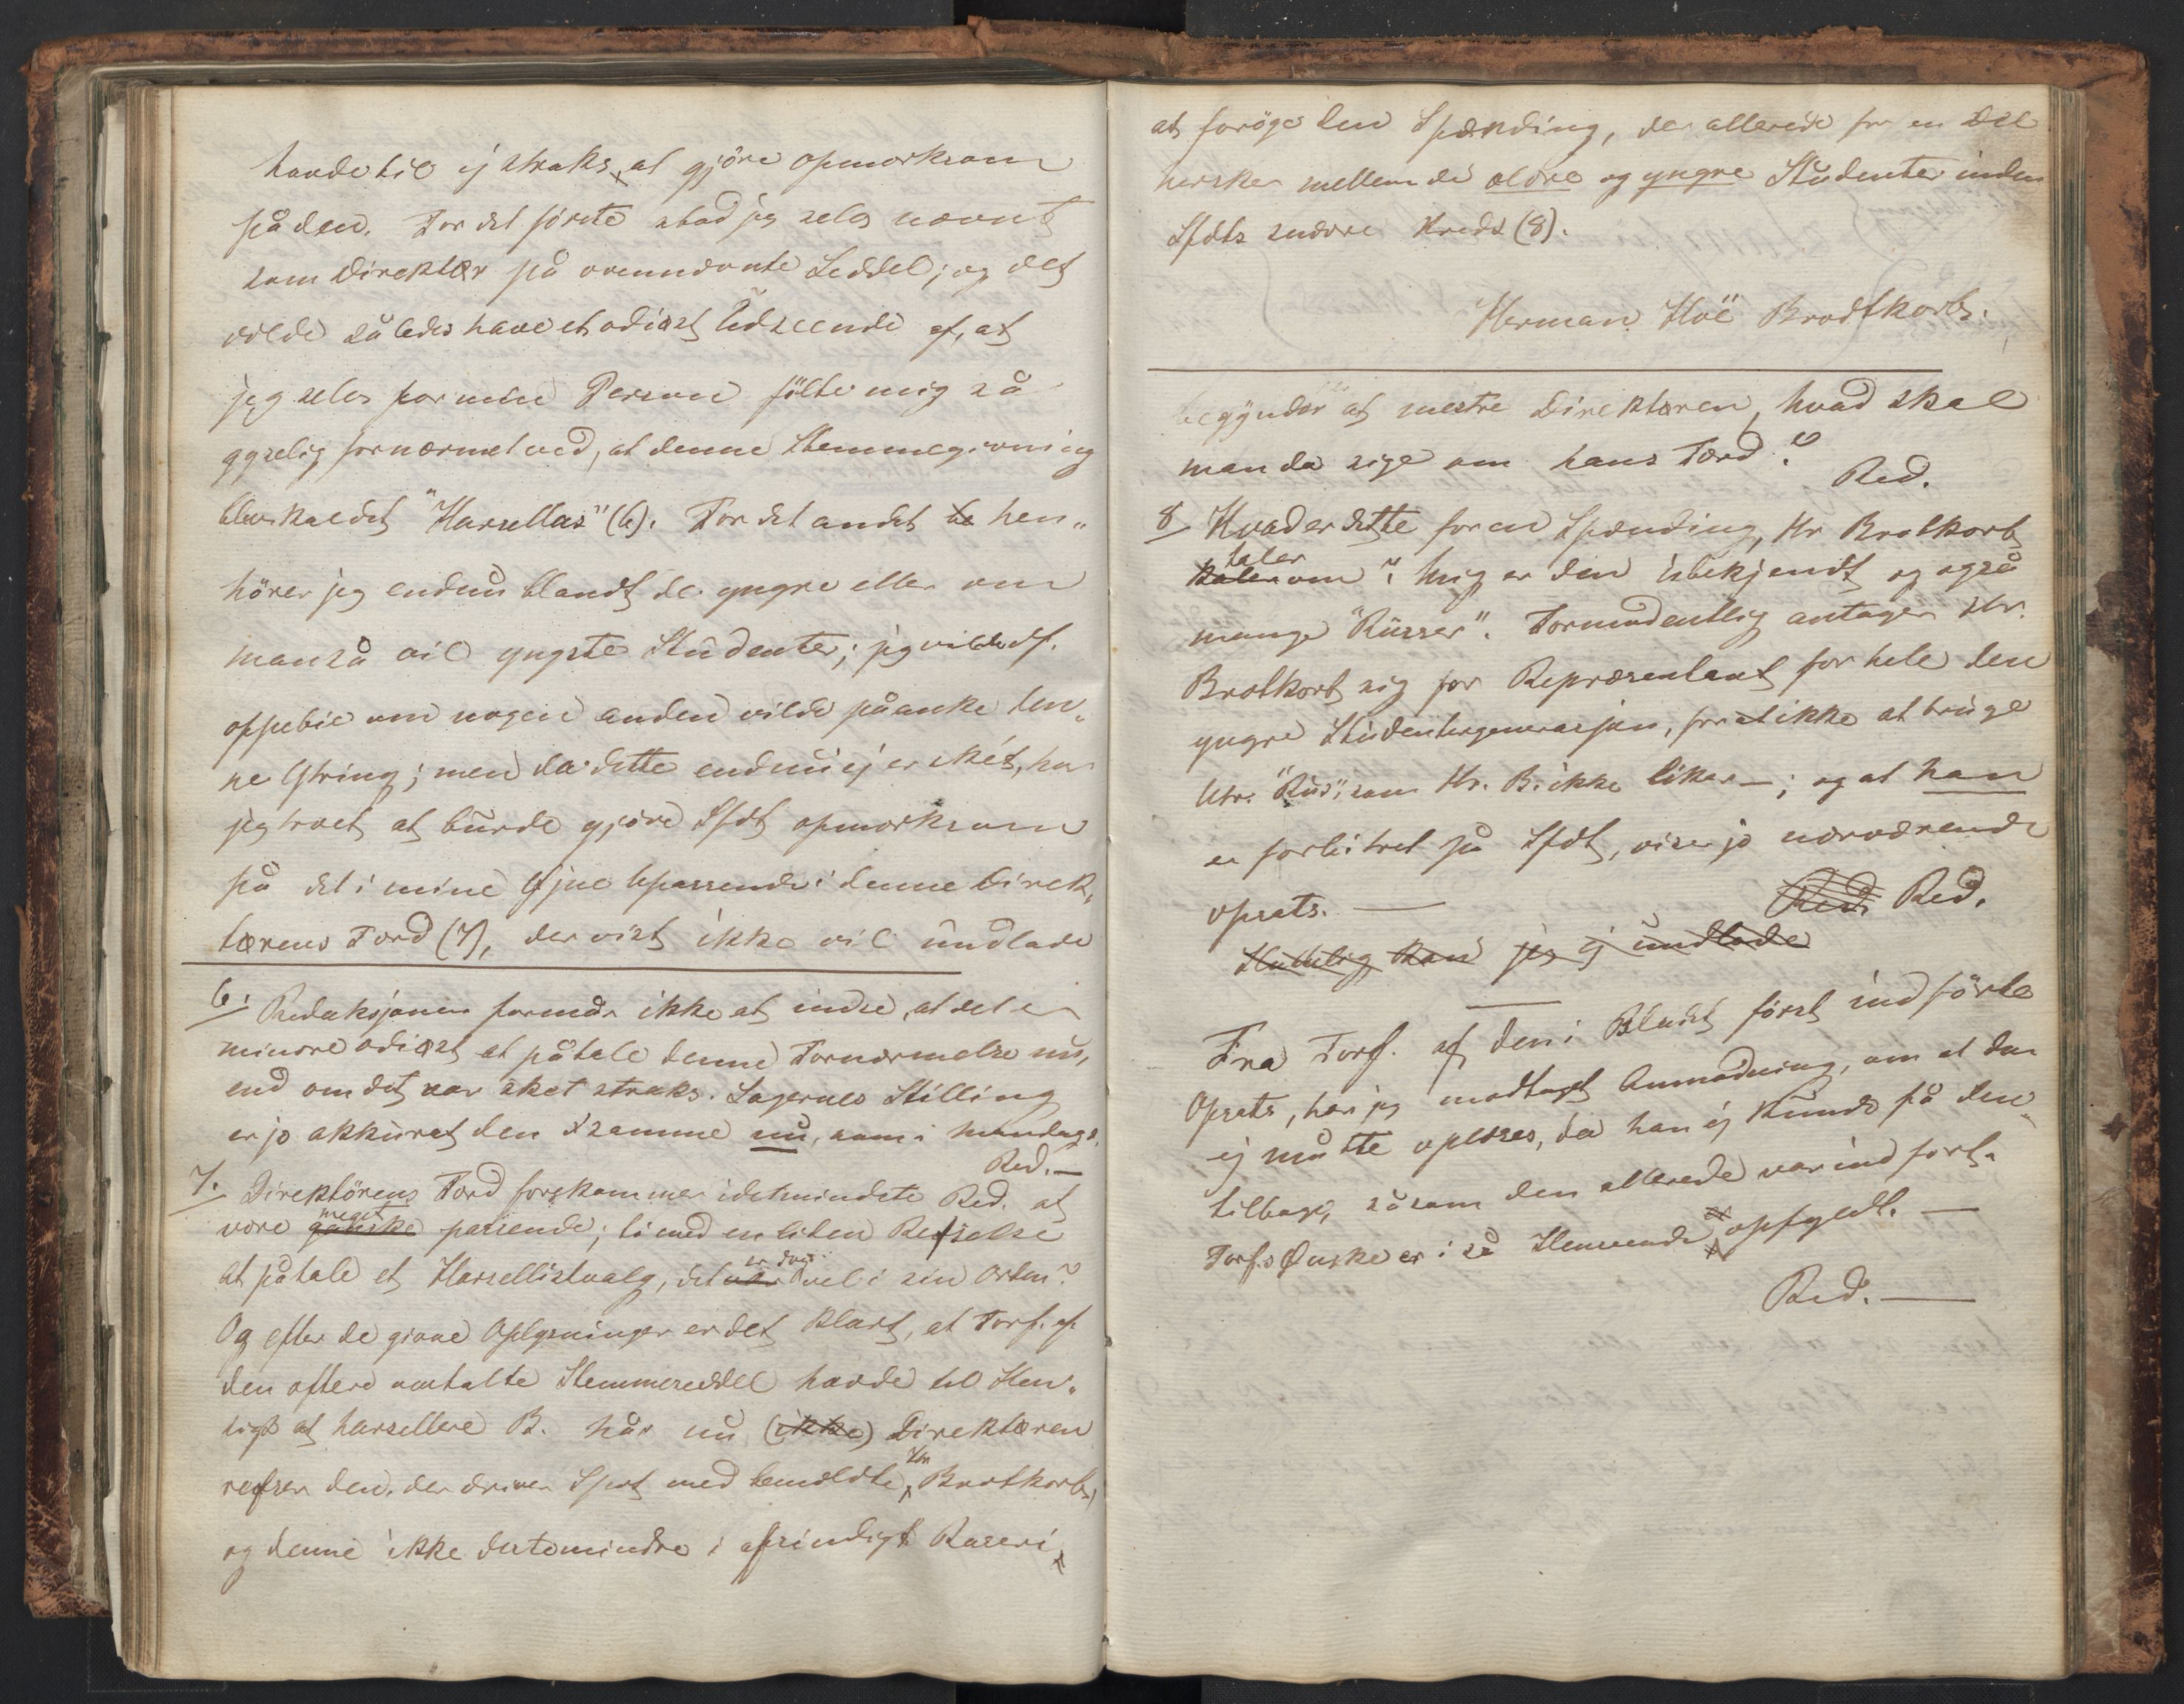 havde til ej straks at gjöre opmærksom
på den. For det förste stod jeg selv nævnt
som Direktör på ovennævnte Seddel; og det
vilde således have et odiöst Udseende af, at
jeg selv for min Person fölte mig så
gyselig fornærmet ved, at denne Stemmegivning
blev kaldet "Harsellas" (6). For det andet be hen„
hörer jeg endnu blandt de yngre eller om
man så vil yngste Studenter; jeg vilde df.
oppebie om nogen anden vilde påanke den„
ne Ytring; men da dette endnu ej er skét, har
jeg troet at burde gjöre Sfdt opmærksom
på det i mine Øjne upassende i denne Direk„
törens Færd (7), der vist ikke vil undlade
6. Redaksjonen formår ikke at indse, at det er
mindre odiöst at påtale denne Fornærmelse nu,
end om det var sket straks. Sagernes Stilling
er jo akkurat den samme nu, som i mandags.
Red. —
7. Direktörens Færd forekommer idetmindste Red. at
være ganske meget passende; ti med en liten Refselse
at påtale et Harsellistvalg, det var er dog vel i sin Orden?
Og efter de givne Oplysninger er det klart, at Forf. af
den oftere omtalte Stemmeseddel havde til Hen„
sigt at harsellere B. når nu (ikke) Direktören
refser den, der driver Spot med bemeldte Hr Brotkorb,
og denne ikke destomindre i afsindigt Raseri
at foröge den Spænding, der allerede for en Del
hersker mellem de ældre og yngre Studenter inden
Sfdts snævre Kreds (8).
Herman Höe Brodtkorb.
begynder at mestre Direktören, hvad skal
man da sige om hans Færd?
Red.
8 Hvad er dette for en Spænding, Hr Brotkorb
taler om? Mig er den ubekjendt og også
mange "Russer". Formodentlig antager Hr.
Brotkorb sig for Repræsentant for hele den
yngre Studentergenerasjon, for at ikke at bruge
Utr. "Rus", som Hr. B. ikke liker —; og at han
er forbitret på Sfdt, viser jo nærværende
opsats. — Red. Red.
Sluttelig kan jeg ej undlade
Fra Forf. af den i Bladet först indförte
Opsats, har jeg modtaget Anmodning, om at den
ej måtte oplæses, da han ej kunde få den
tilbage, såsom den allerede var indfört.
Forf.s Ønske er i så Henseende opfyldt. —
Red. —